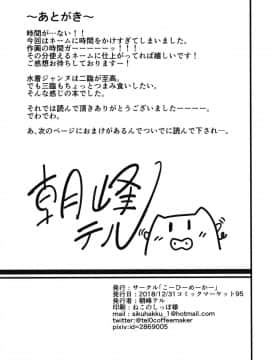 ～あとがき～
時間が…ない！！
今回はネームに時間をかけすぎてしまいました。
作画の時間ガーーーーーーッ！！！
その分使えるネームに仕上がってれば嬉しいです！
ご感想お待ちしておりますー！
水着ジャンヌは二臨が至高。
でも三臨もちょっとつまみ食いしたい。
そんな感じの本でした。
それでは読んで頂きありがとうございましたーーーー。
でわでわ。
あ、次のページにおまけがあるんでついでに読んで下され…。
朝峰テル
発行：サークル「こーひーめーかー」
発行日：2018/12/31コミックマーケット95
発行者：朝峰テル
印刷：ねこのしっぽ様
mail：sikuhakku_1@hotmail.com
twitter:@tel0coffeemaker
pixiv:id=2869005